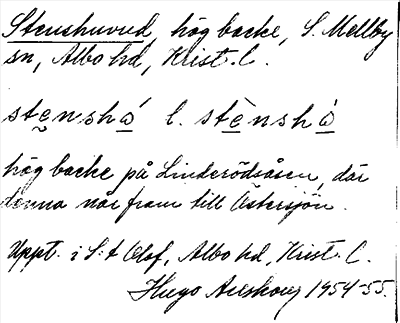 Stenshuvud, hög backe, S. Mellby
sn, Albo hd, Krist. l.
stenshǻ l. stènshǻ
hög backe på Linderödsåsen, där
denna når fram till Östersjön.
Uppt. i S:t Olof, Albo hd, Krist. l.
Hugo Areskoug 1954-55.